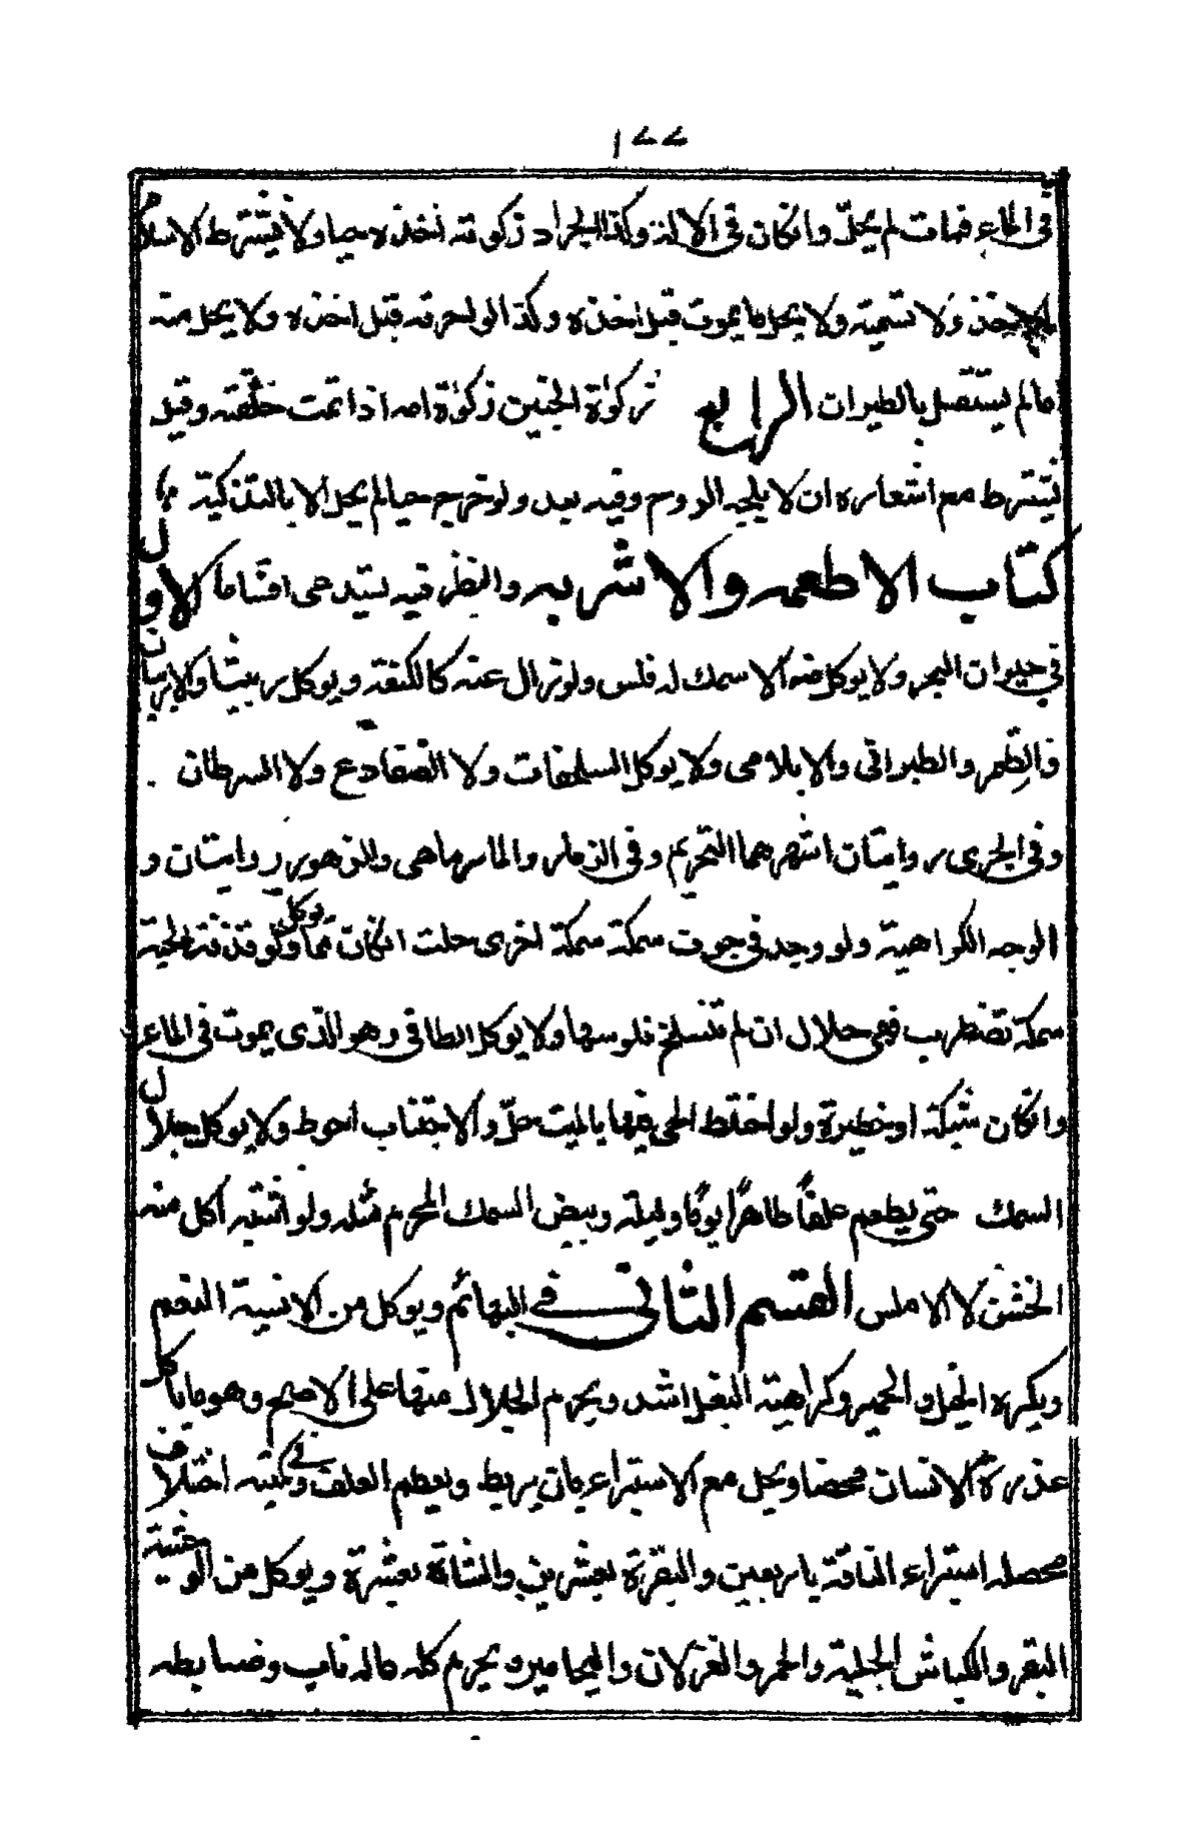 ١٢٢
في الماء فمات لم يحلّ وانكان في الالة وكذا الجراد زكوته اخذه حيا ولا يشترط الاسلام
ولا تسميته ولا يحل ما يموت قبل اخذه وكذا لو احرقه قبل اخذه ولا يحل منه
ما لم يستقل بالطيران الرابع زكوٰة الجنين زكوٰة امه اذا تمت خلقته وقيل
يشترط مع اشعاره ان لا يلجه الروح وفيه بعد ولو خرج حيا لم يحل الا بالتذكية
كتاب الاطعمه والاشربه والنظر فيه يستدعى اقساما الاول
في حيوان البحر ولا يوكل منه الا سمك له فلس ولو زال عنه كالكنعة ويوكل ربيثا والاربيان
والطمر والطبرانى والابلامى ولا يوكل السلحفات ولا الضفادع ولا السرطان
وفى الجرى روايتان اشهرهما التحريم وفي الزمار والمارماهى والزهور روايتان و
الوجه الكراهية ولو وجد في جوف سمكة سمكة اخرى حلت انكانت مما يوكل ولو قذفت الحية
سمكة تضطرب فهى حلال ان لم تنسلخ فلوسها ولا يوكل الطافى وهو الذى يموت في الماء
وانكان شبكة او حظيرة ولو اختلط الحى فيها بالميت حلّ والاجتناب احوط ولا يوكل جلال
السمك حتى يطعم علفاً طاهراً يوما وليلة وبيض السمك المحرم مثله ولو اشتبه اكل منه
الخشن لا الاملس القسم الثانى في البهائم ويوكل من الانسية النعم
ويكره الخيل والحمير وكراهية البغل اشد ويحرم الجلال منها على الاصح وهو ما ياكل
عذرة الانسان محضا ويحل مع الاستبراء بان يربط ويطعم العلف وفى كميته اختلاف
محصله استبراء الناقة باربعين والبقرة بعشرين والشاة بعشرة ويوكل من الوحشية
البقر والكباش الجبلية والحمر والغزلان واليحامير ويحرم كله ماله ناب وضابطه